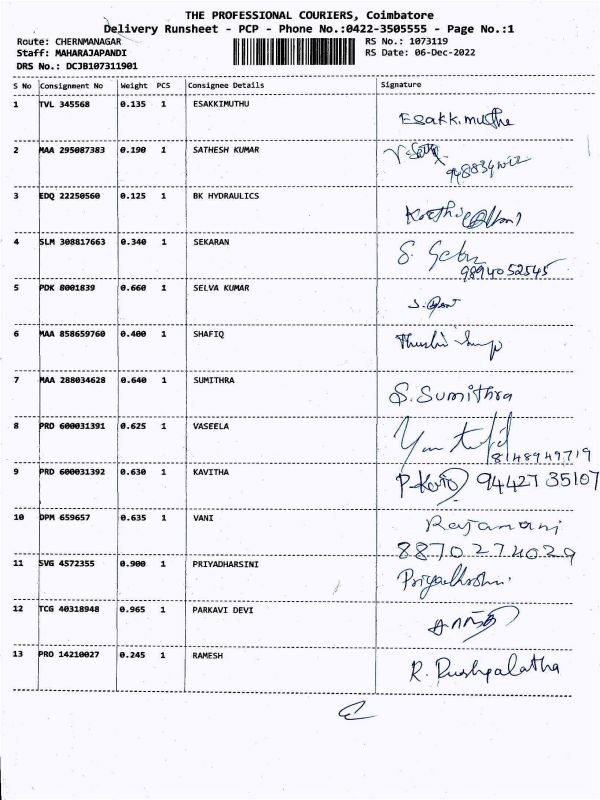 THE PROFESSIONAL COURIERS, Coimbatore
Delivery Runsheet - PCP - Phone No.:0422-3505555 - Page No.:1
Route: CHERNMANAGAR RS No.: 1073119
Staff: MAHARAJAPANDI RS Date: 06-Dec-2022
DRS No.: DCJB107311901
S No Consignment No Weight PCS Consignee Details Signature
1 TVL 345568 0.135 1 ESAKKIMUTHU
Esakk.muthu
2 MAA 295087383 0.190 1 SATHESH KUMAR
3 EDQ 22250560 0.125 1 BK HYDRAULICS
4 SLM 308817663 0.340 1 SEKARAN
9894052545
5 PDK 8001839 0.660 1 SELVA KUMAR
6 MAA 858659760 0.400 1 SHAFIQ
7 MAA 288034628 0.640 1 SUMITHRA
S. Sumithra
8 PRD 600031391 0.625 1 VASEELA
8148949719
9 PRD 600031392 0.630 1 KAVITHA
9442735107
10 DPM 659657 0.635 1 VANI
Rajamani
8870274029
11 SVG 4572355 0.900 1 PRIYADHARSINI
12 TCG 40318948 0.965 1 PARKAVI DEVI
13 PRO 14210027 0.245 1 RAMESH
R. Pushpalatha